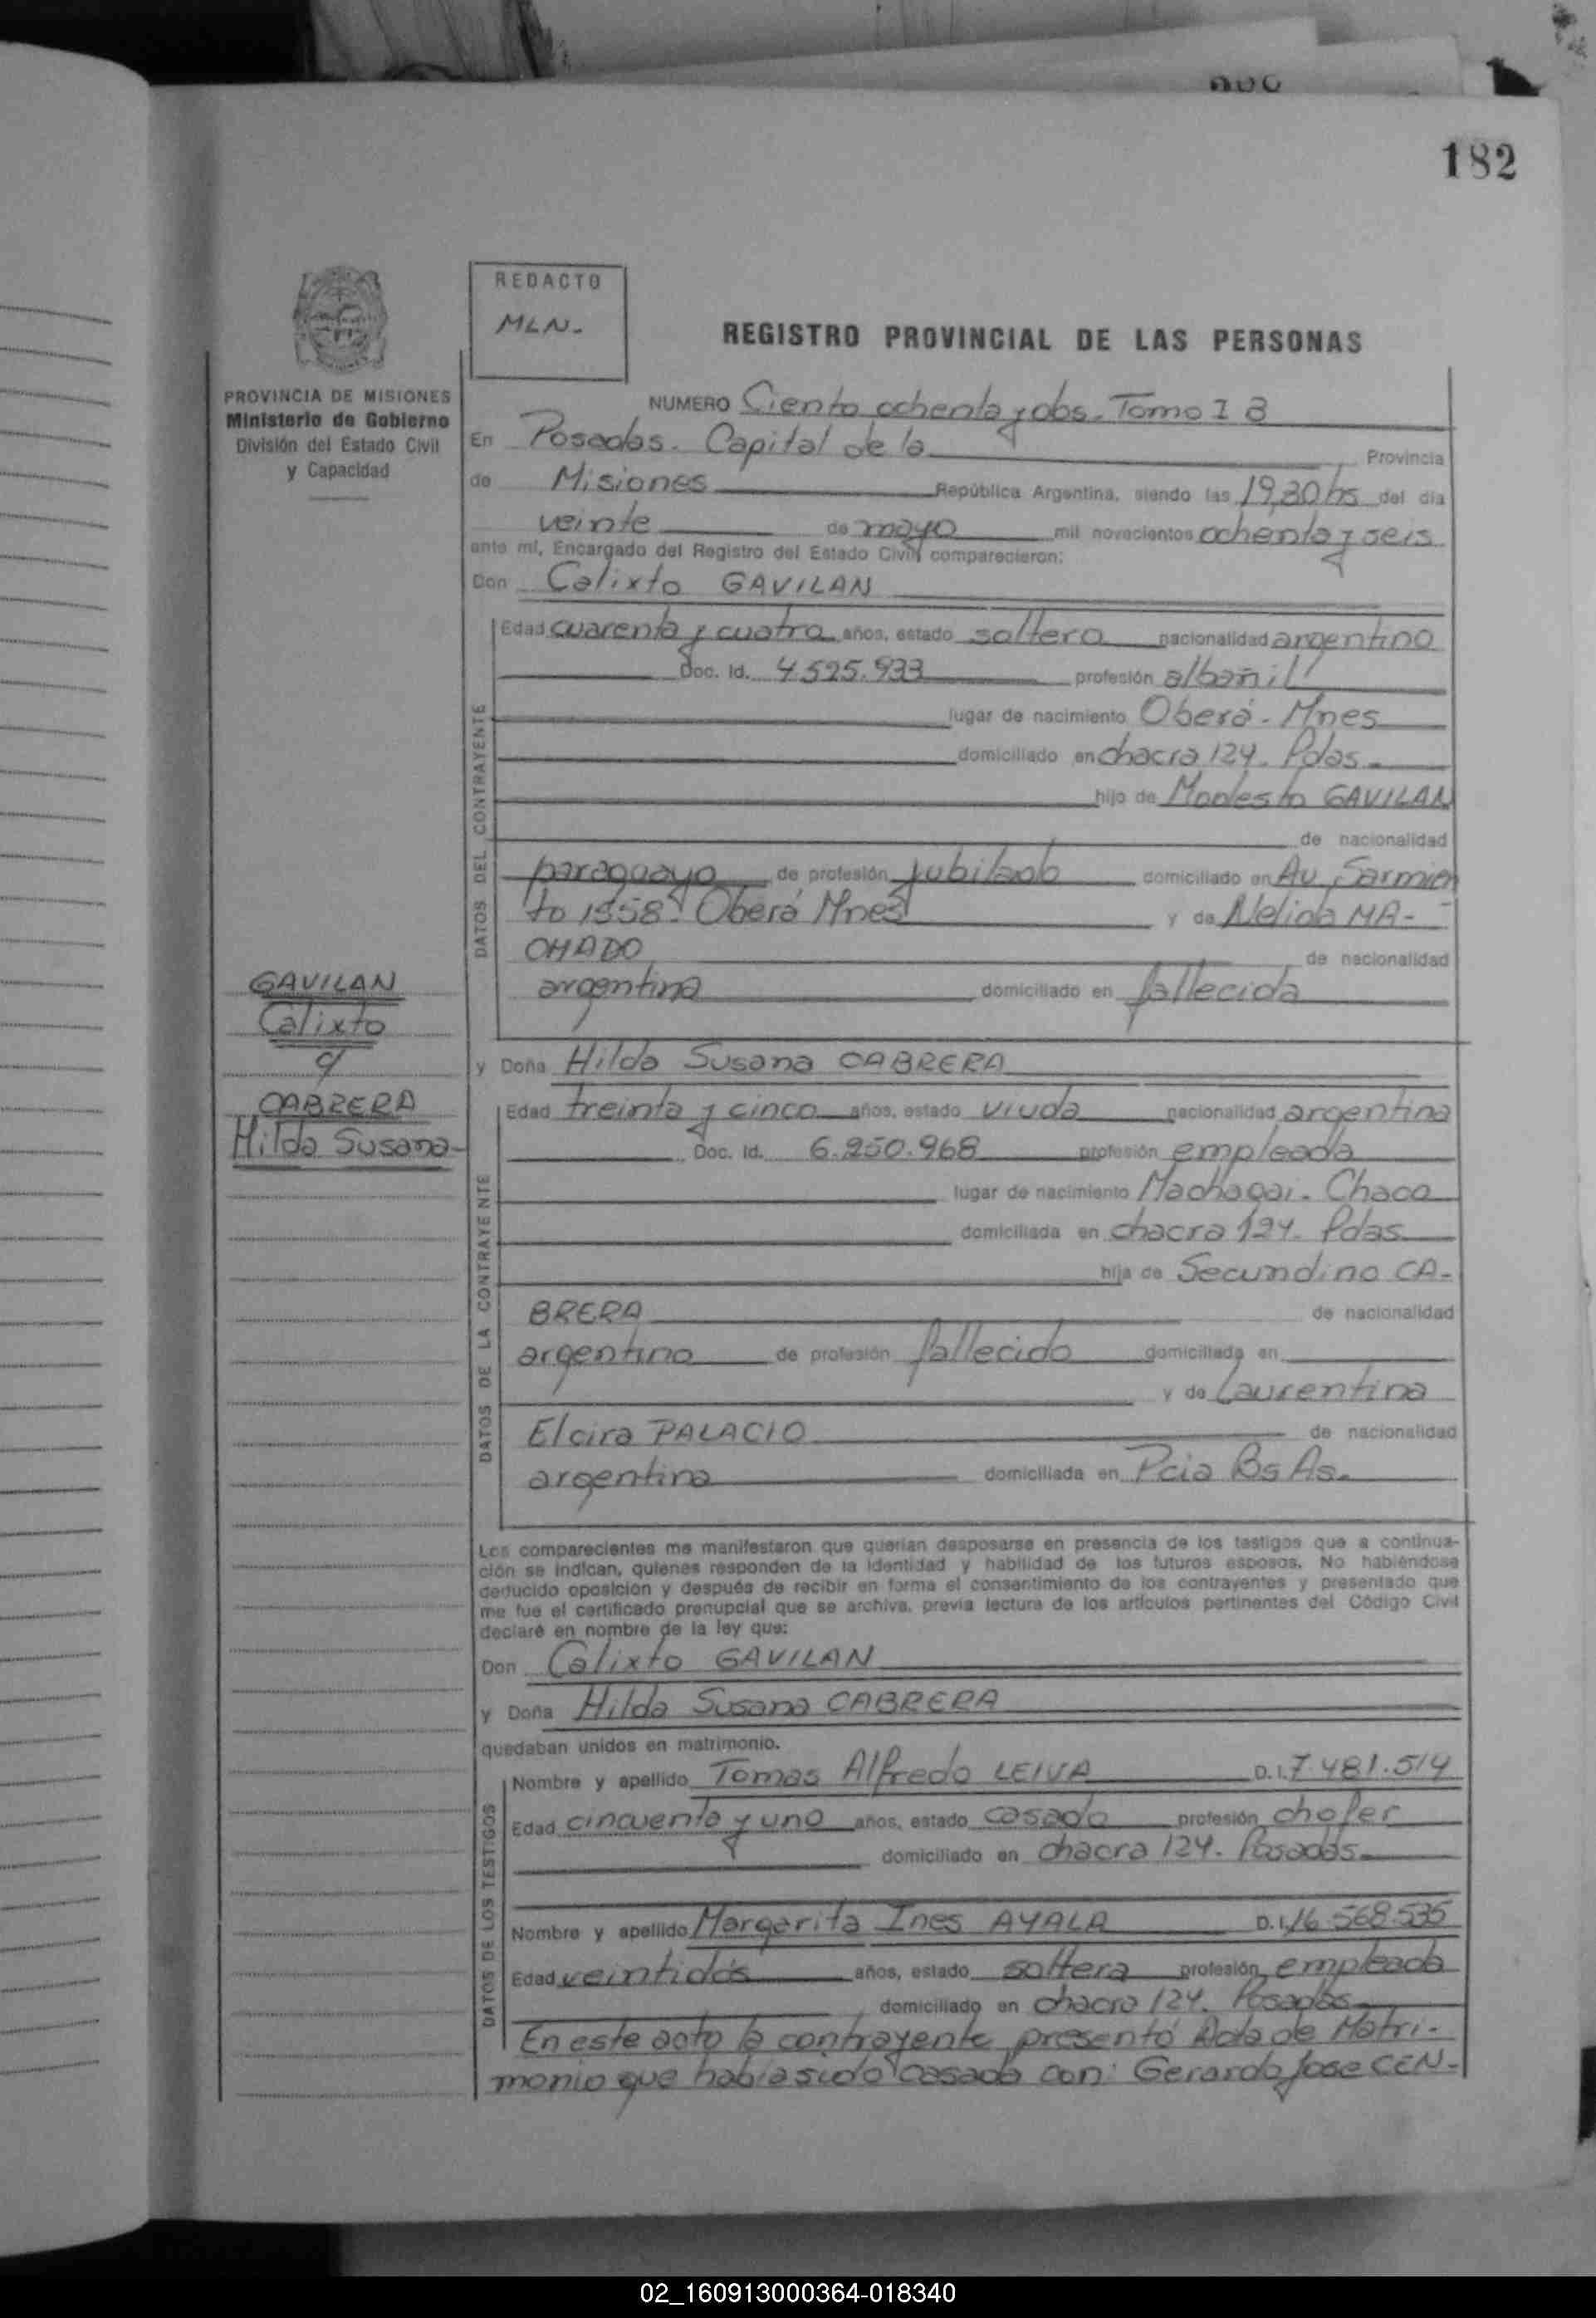 182
REDACTO
MLN.
REGISTRO PROVINCIAL DE LAS PERSONAS
PROVINCIA DE MISIONES
Ministerio de Gobierno
División del Estado Civil
y Capacidad
NUMERO Ciento ochenta y dos. Tomo I B
En Posadas. Capital de la Provincia
de Misiones República Argentina, siendo las 19,30 hs del día
veinte de mayo mil novecientos ochenta y seis
ante mí, Encargado del Registro del Estado Civil comparecieron:
Don Calixto GAVILAN
DATOS DEL CONTRAYENTE
Edad cuarenta y cuatro años, estado soltero nacionalidad argentino
Doc. Id. 4.525.933 profesión albañil
lugar de nacimiento Oberá - Mnes
domiciliado en chacra 124. Pdas.
hijo de Modesto GAVILAN
de nacionalidad
paraguayo de profesión jubilado domiciliado en Av. Sarmien
to 1558. Oberá Mnes y de Nelida MA-
CHADO de nacionalidad
argentina domiciliado en fallecida
GAVILAN
Calixto
c/
CABRERA
Hilda Susana
y Doña Hilda Susana CABRERA
DATOS DE LA CONTRAYENTE
Edad treinta y cinco años, estado viuda nacionalidad argentina
Doc. Id. 6.250.968 profesión empleada
lugar de nacimiento Machagai. Chaco
domiciliada en chacra 124. Pdas
hija de Secundino CA-
BRERA de nacionalidad
argentino de profesión fallecido domiciliado en
y de Laurentina
Elcira PALACIO de nacionalidad
argentina domiciliada en Pcia Bs As.
Los comparecientes me manifestaron que querían desposarse en presencia de los testigos que a continua-
ción se indican, quienes responden de la identidad y habilidad de los futuros esposos. No habiéndose
deducido oposición y después de recibir en forma el consentimiento de los contrayentes y presentado que
me fue el certificado prenupcial que se archiva, previa lectura de los artículos pertinentes del Código Civil
declaré en nombre de la ley que:
Don Calixto GAVILAN
y Doña Hilda Susana CABRERA
quedaban unidos en matrimonio.
DATOS DE LOS TESTIGOS
Nombre y apellido Tomas Alfredo LEIVA D.I. 7.481.514
Edad cincuenta y uno años, estado casado profesión chofer
domiciliado en chacra 124. Posadas
Nombre y apellido Margarita Ines AYALA D.I. 16.568.535
Edad veintidós años, estado soltera profesión empleada
domiciliado en chacra 124. Posadas
En este acto la contrayente presentó Acta de Matri-
monio que había sido casada con: Gerardo Jose CEN-
02_160913000364-018340